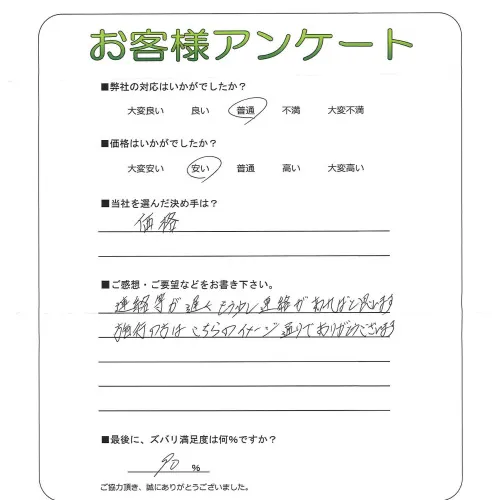 お客様アンケート
■弊社の対応はいかがでしたか？
大変良い 良い 普通 不満 大変不満
■価格はいかがでしたか？
大変安い 安い 普通 高い 大変高い
■当社を選んだ決め手は？
価格
■ご感想・ご要望などをお書き下さい。
連絡等が遅くもう少し連絡があればと思います
施術の方はこちらのイメージ通りでありがとうございます
■最後に、ズバリ満足度は何%ですか？
90 %
ご協力頂き、誠にありがとうございました。